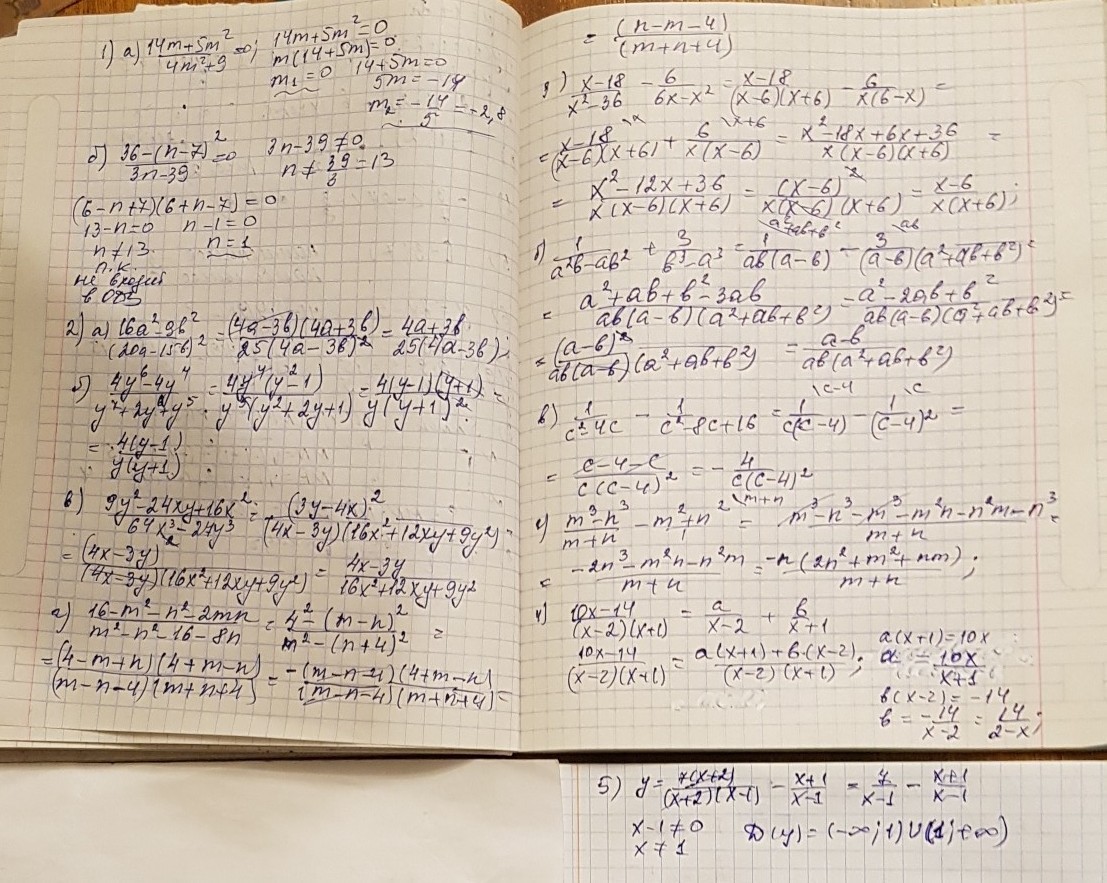 1) а) (14m+5m²)/(4m²+9) =0; 14m+5m²=0
m(14+5m)=0
m₁=0 14+5m=0
5m=-14
m₂=-14/5=-2,8
б) (36-(n-7)²)/(3n-39)=0 3n-39≠0
n≠39/3=13
(6-n+7)(6+n-7)=0
13-n=0 n-1=0
n≠13 n=1
т.к.
не входит
в ОДЗ
2) а) (16a²-9b²)/(20a-15b)² = ((4a-3b)(4a+3b))/(25(4a-3b)²) = (4a+3b)/(25(4a-3b));
б) (4y⁶-4y⁴)/(y⁷+2y⁶+y⁵) = (4y⁴(y²-1))/(y⁵(y²+2y+1)) = (4(y-1)(y+1))/(y(y+1)²) =
= (4(y-1))/(y(y+1))
в) (9y²-24xy+16x²)/(64x³-27y³) = (3y-4x)²/((4x-3y)(16x²+12xy+9y²)) =
= (4x-3y)²/((4x-3y)(16x²+12xy+9y²)) = (4x-3y)/(16x²+12xy+9y²)
г) (16-m²-n²-2mn)/(m²-n²-16-8n) = (4²-(m-n)²)/(m²-(n+4)²) =
= ((4-m+n)(4+m-n))/((m-n-4)(m+n+4)) = (-(m-n-4)(4+m-n))/((m-n-4)(m+n+4)) =
= (n-m-4)/(m+n+4)
3) (x-18)/(x²-36) - 6/(6x-x²) = (x-18)/((x-6)(x+6)) - 6/(x(6-x)) =
= (x-18)/((x-6)(x+6)) \x + 6/(x(x-6)) \x+6 = (x²-18x+6x+36)/(x(x-6)(x+6)) =
= (x²-12x+36)/(x(x-6)(x+6)) = (x-6)²/(x(x-6)(x+6)) = (x-6)/(x(x+6));
б) 1/(a²b-ab²) + 3/(b³-a³) = 1/(ab(a-b)) \a²+ab+b² - 3/((a-b)(a²+ab+b²)) \ab =
= (a²+ab+b²-3ab)/(ab(a-b)(a²+ab+b²)) = (a²-2ab+b²)/(ab(a-b)(a²+ab+b²)) =
= (a-b)²/(ab(a-b)(a²+ab+b²)) = (a-b)/(ab(a²+ab+b²))
в) 1/(c²-4c) - 1/(c²-8c+16) = 1/(c(c-4)) \c-4 - 1/(c-4)² \c =
= (c-4-c)/(c(c-4)²) = -4/(c(c-4)²)
г) (m³-n³)/(m+n) - m²+n² \m+n = (m³-n³-m³-m²n-n²m-n³)/(m+n) =
= (-2n³-m²n-n²m)/(m+n) = (-n(2n²+m²+nm))/(m+n);
4) (10x-14)/((x-2)(x+1)) = a/(x-2) + b/(x+1)
(10x-14)/((x-2)(x+1)) = (a(x+1)+b(x-2))/((x-2)(x+1));
a(x+1)=10x
a = 10x/(x+1)
b(x-2)=-14
b=-14/(x-2)=14/(2-x);
5) y=7(x+2)/((x+2)(x-1)) - (x+1)/(x-1) = 7/(x-1) - (x+1)/(x-1)
x-1≠0 D(y)=(-∞;1)∪(1;+∞)
x≠1